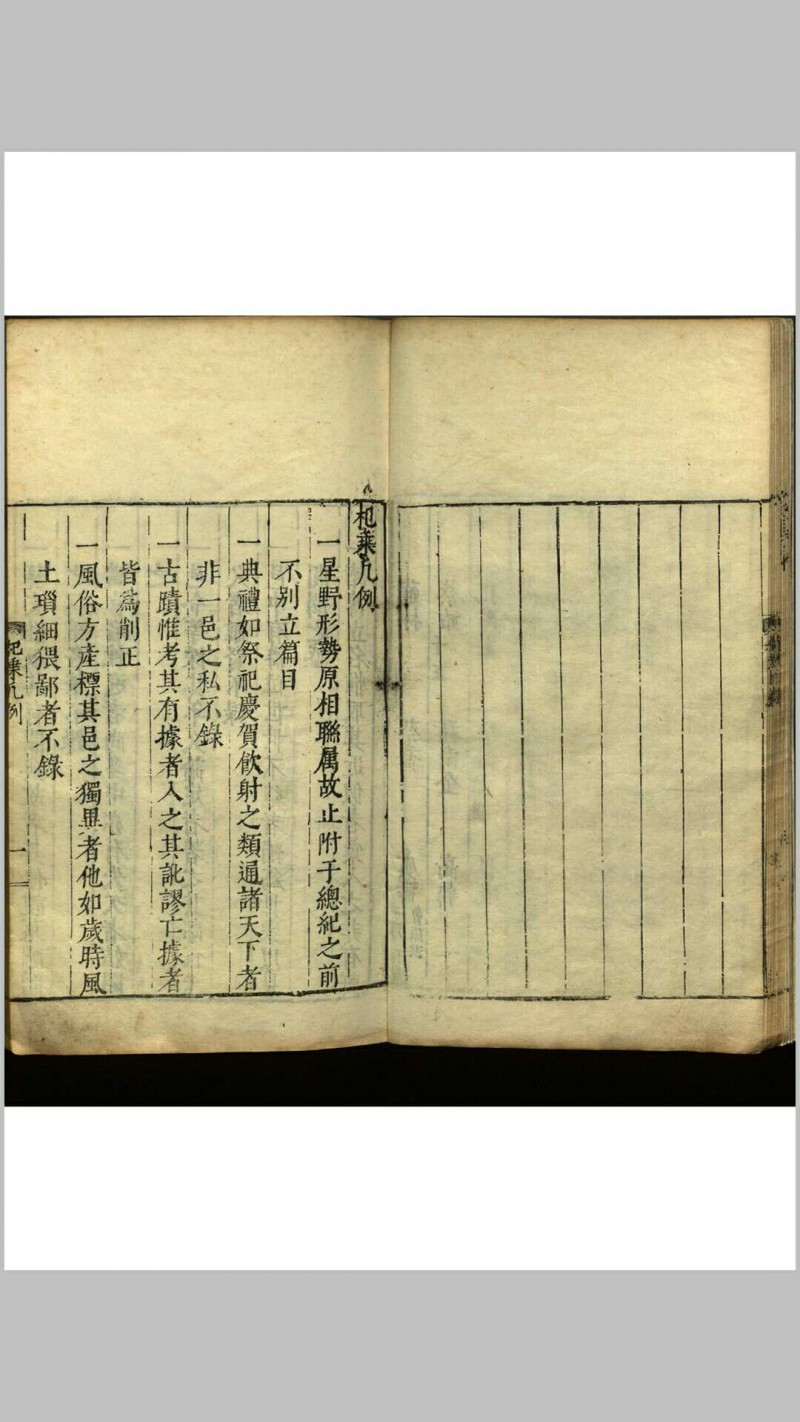 杞乗凡例
一星野形勢原相聯属故止附于總紀之前
不别立篇目
一典禮如祭祀慶賀飲射之類通諸天下者
非一邑之私不錄
一古蹟惟考其有據者入之其訛謬亡據者
皆為削正
一風俗方產標其邑之獨異者他如歲時風
土瑣細猥鄙者不錄
杞乗凡例
一